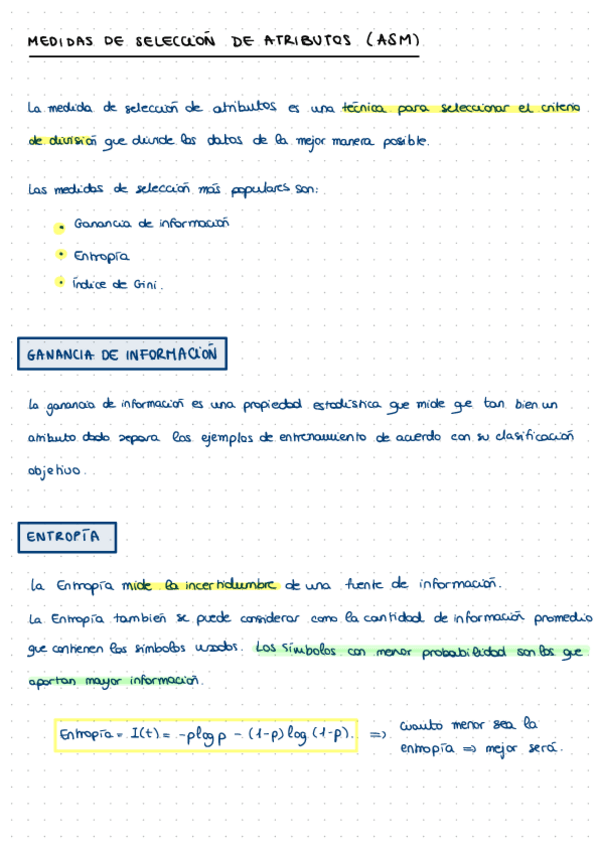 MEDIDAS DE SELECCIÓN DE ATRIBUTOS (ASM)
La medida de selección de atributos es una técnica para seleccionar el criterio
de división que divide los datos de la mejor manera posible.
Las medidas de selección más populares son:
• Ganancia de información
• Entropía
• Índice de Gini.
GANANCIA DE INFORMACIÓN
La ganancia de información es una propiedad estadística que mide que tan bien un
atributo dado separa los ejemplos de entrenamiento de acuerdo con su clasificación
objetivo.
ENTROPÍA
La Entropía mide la incertidumbre de una fuente de información.
La Entropía también se puede considerar como la cantidad de información promedio
que contienen los símbolos usados. Los símbolos con menor probabilidad son los que
aportan mayor información.
Entropía = I(t) = -p log p - (1-p) log (1-p). => cuanto menor sea la
entropía => mejor será.